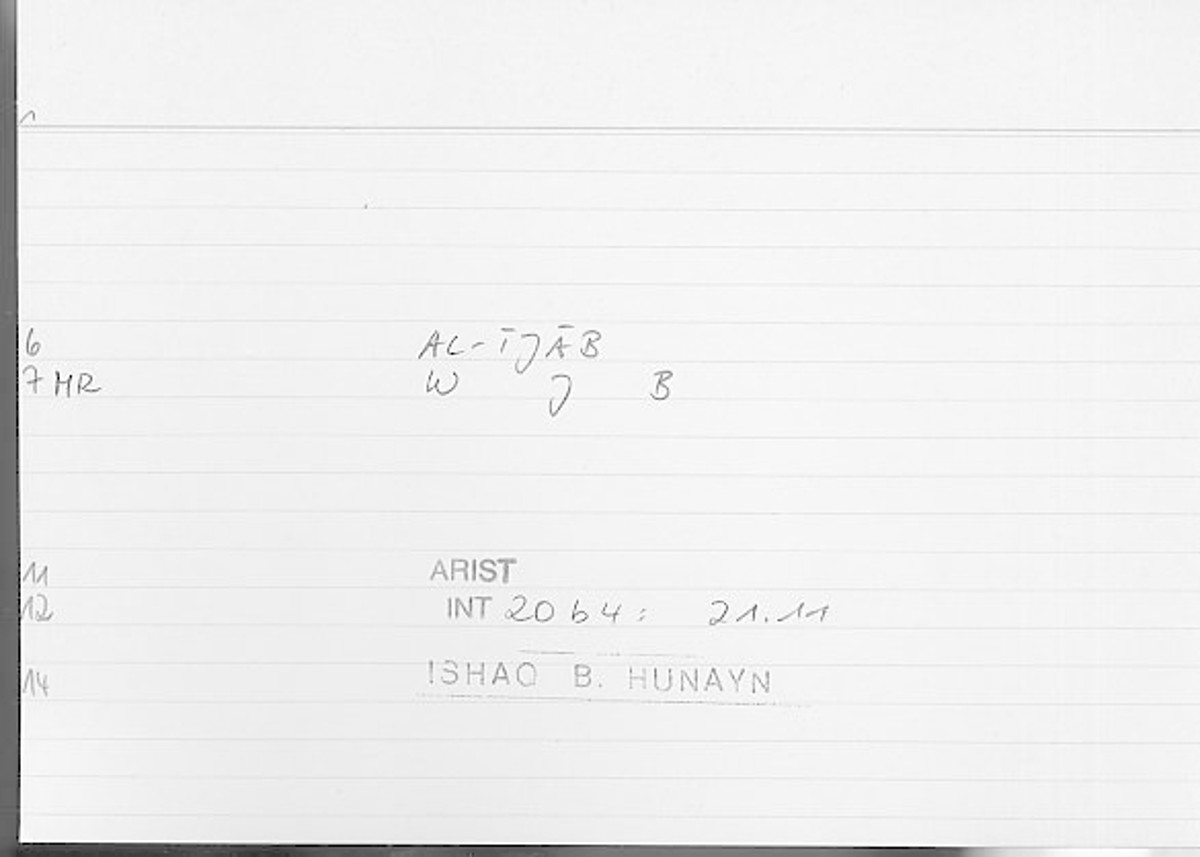 1
6 AL-ĪJĀB
7 MR W J B
11 ARIST
12 INT 20 b 4: 21.11
14 ISHAQ B. HUNAYN